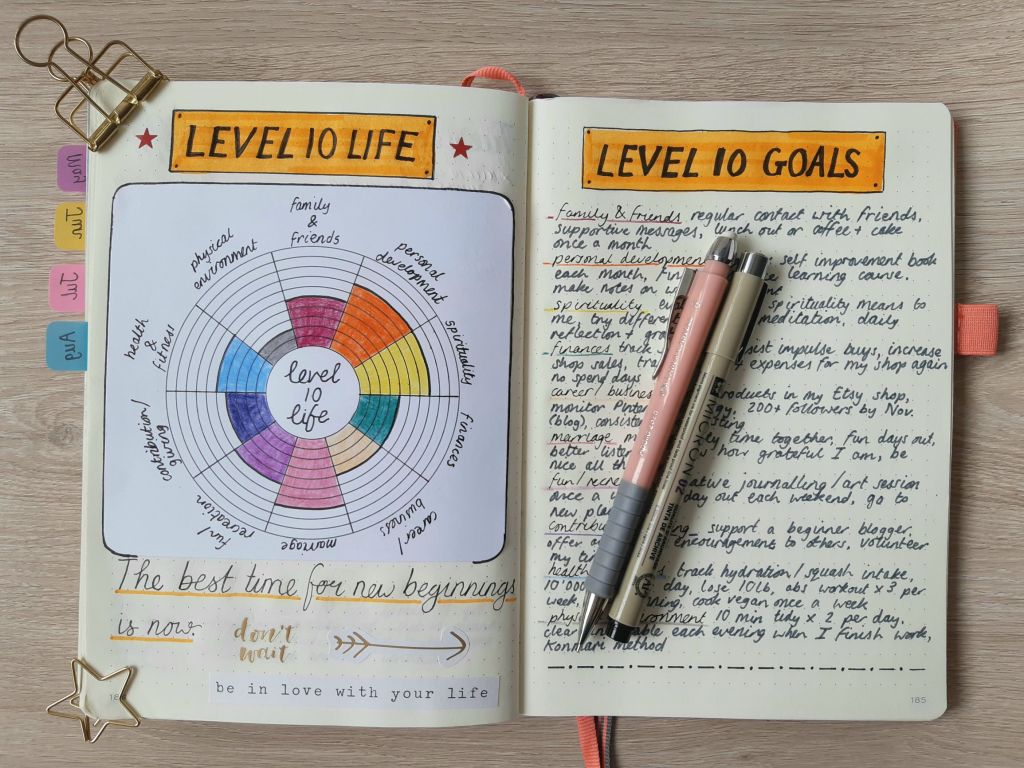 May
Jun
Jul
Aug
LEVEL 10 LIFE
family
&
friends
personal
development
spirituality
finances
career/
business
marriage
fun/
recreation
contribution/
giving
health
&
fitness
physical
environment
level
10
life
The best time for new beginnings
is now.
don't
wait
be in love with your life
LEVEL 10 GOALS
family & friends regular contact with friends,
supportive messages, lunch out or coffee + cake
once a month
personal development self improvement book
each month, learning course.
make notes on
spirituality spirituality means to
me, try meditation, daily
reflection +
finances track impulse buys, increase
shop sales, expenses for my shop again
no spend days
career/ products in my Etsy shop,
monitor 200+ followers by Nov.
(blog),
marriage time together, fun days out,
better how grateful I am, be
nice all
fun/ journalling/art session
once a day out each weekend, go to
new
support a beginner blogger,
offer encouragement to others, volunteer
my
health track hydration/squash intake,
10'000 day, lose 10lb, abs workout x3 per
week, cook vegan once a week
10 min tidy x 2 per day.
clear each evening when I finish work,
Konmari method
MICRON 02
185